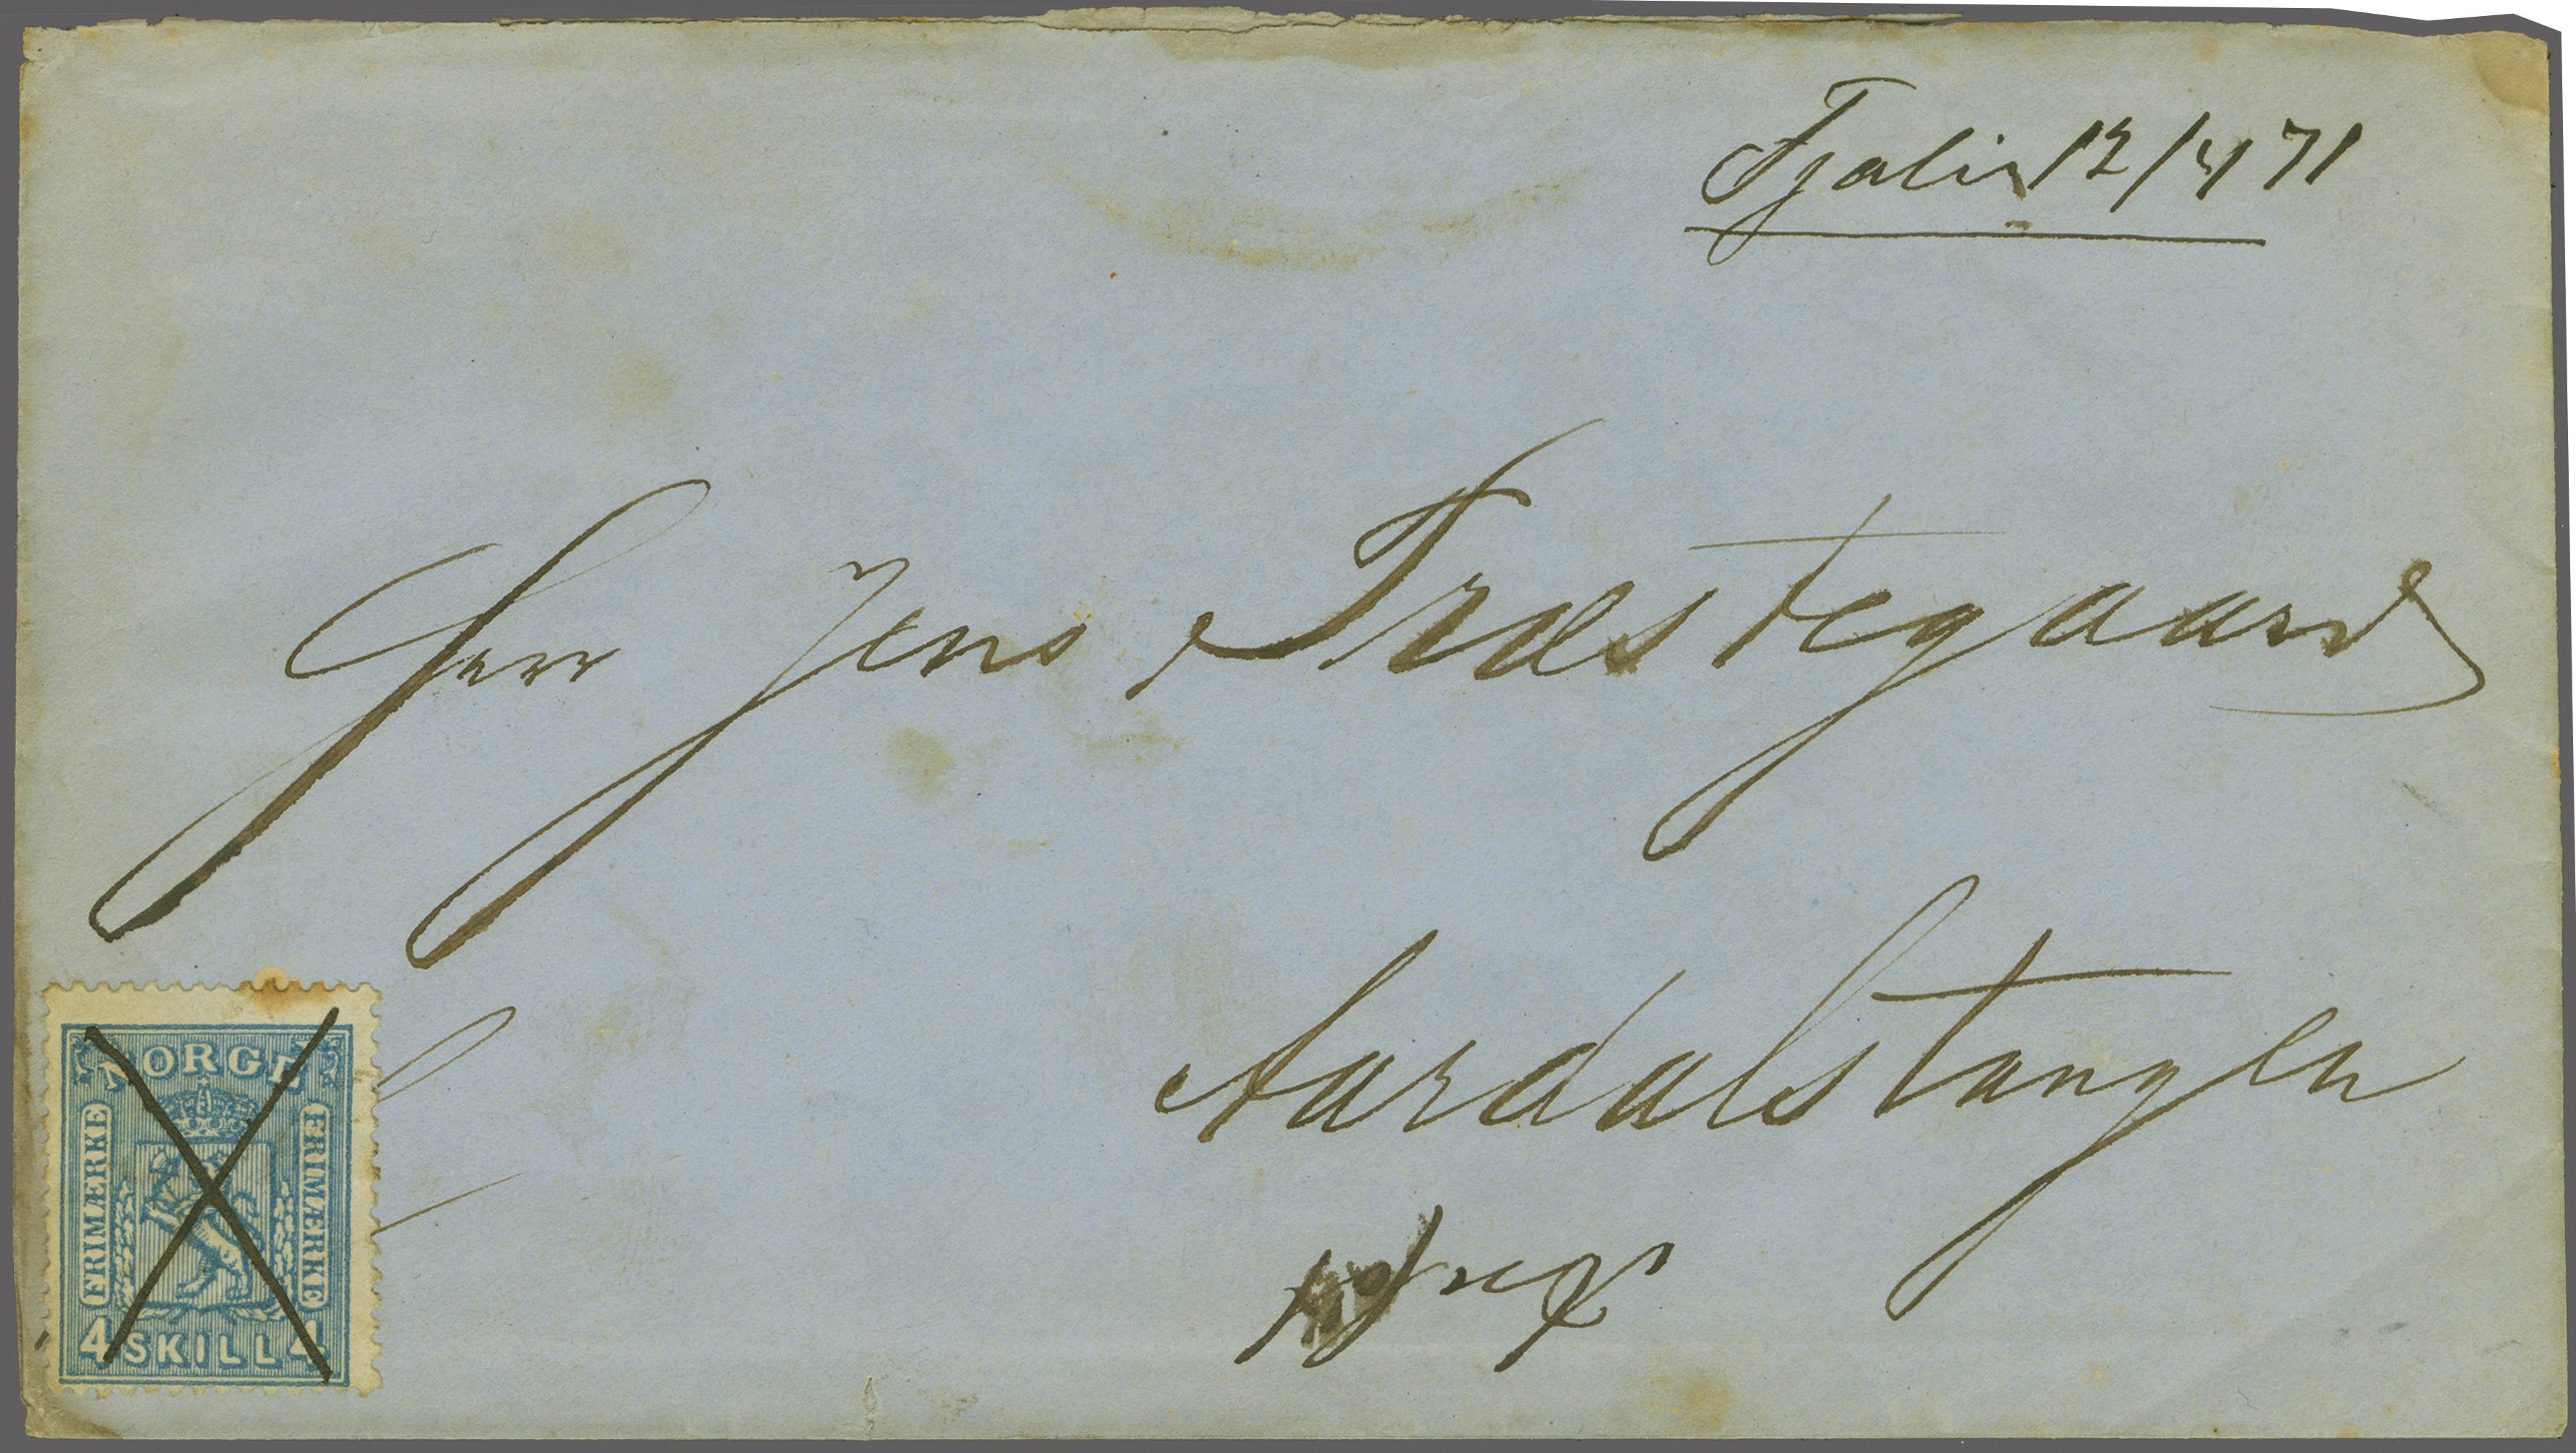 Fjalir 12/4 71
Herr Jens Træstegaard
Aardalstangen
NORGE
FRIMÆRKE
FRIMÆRKE
4 SKILL 4